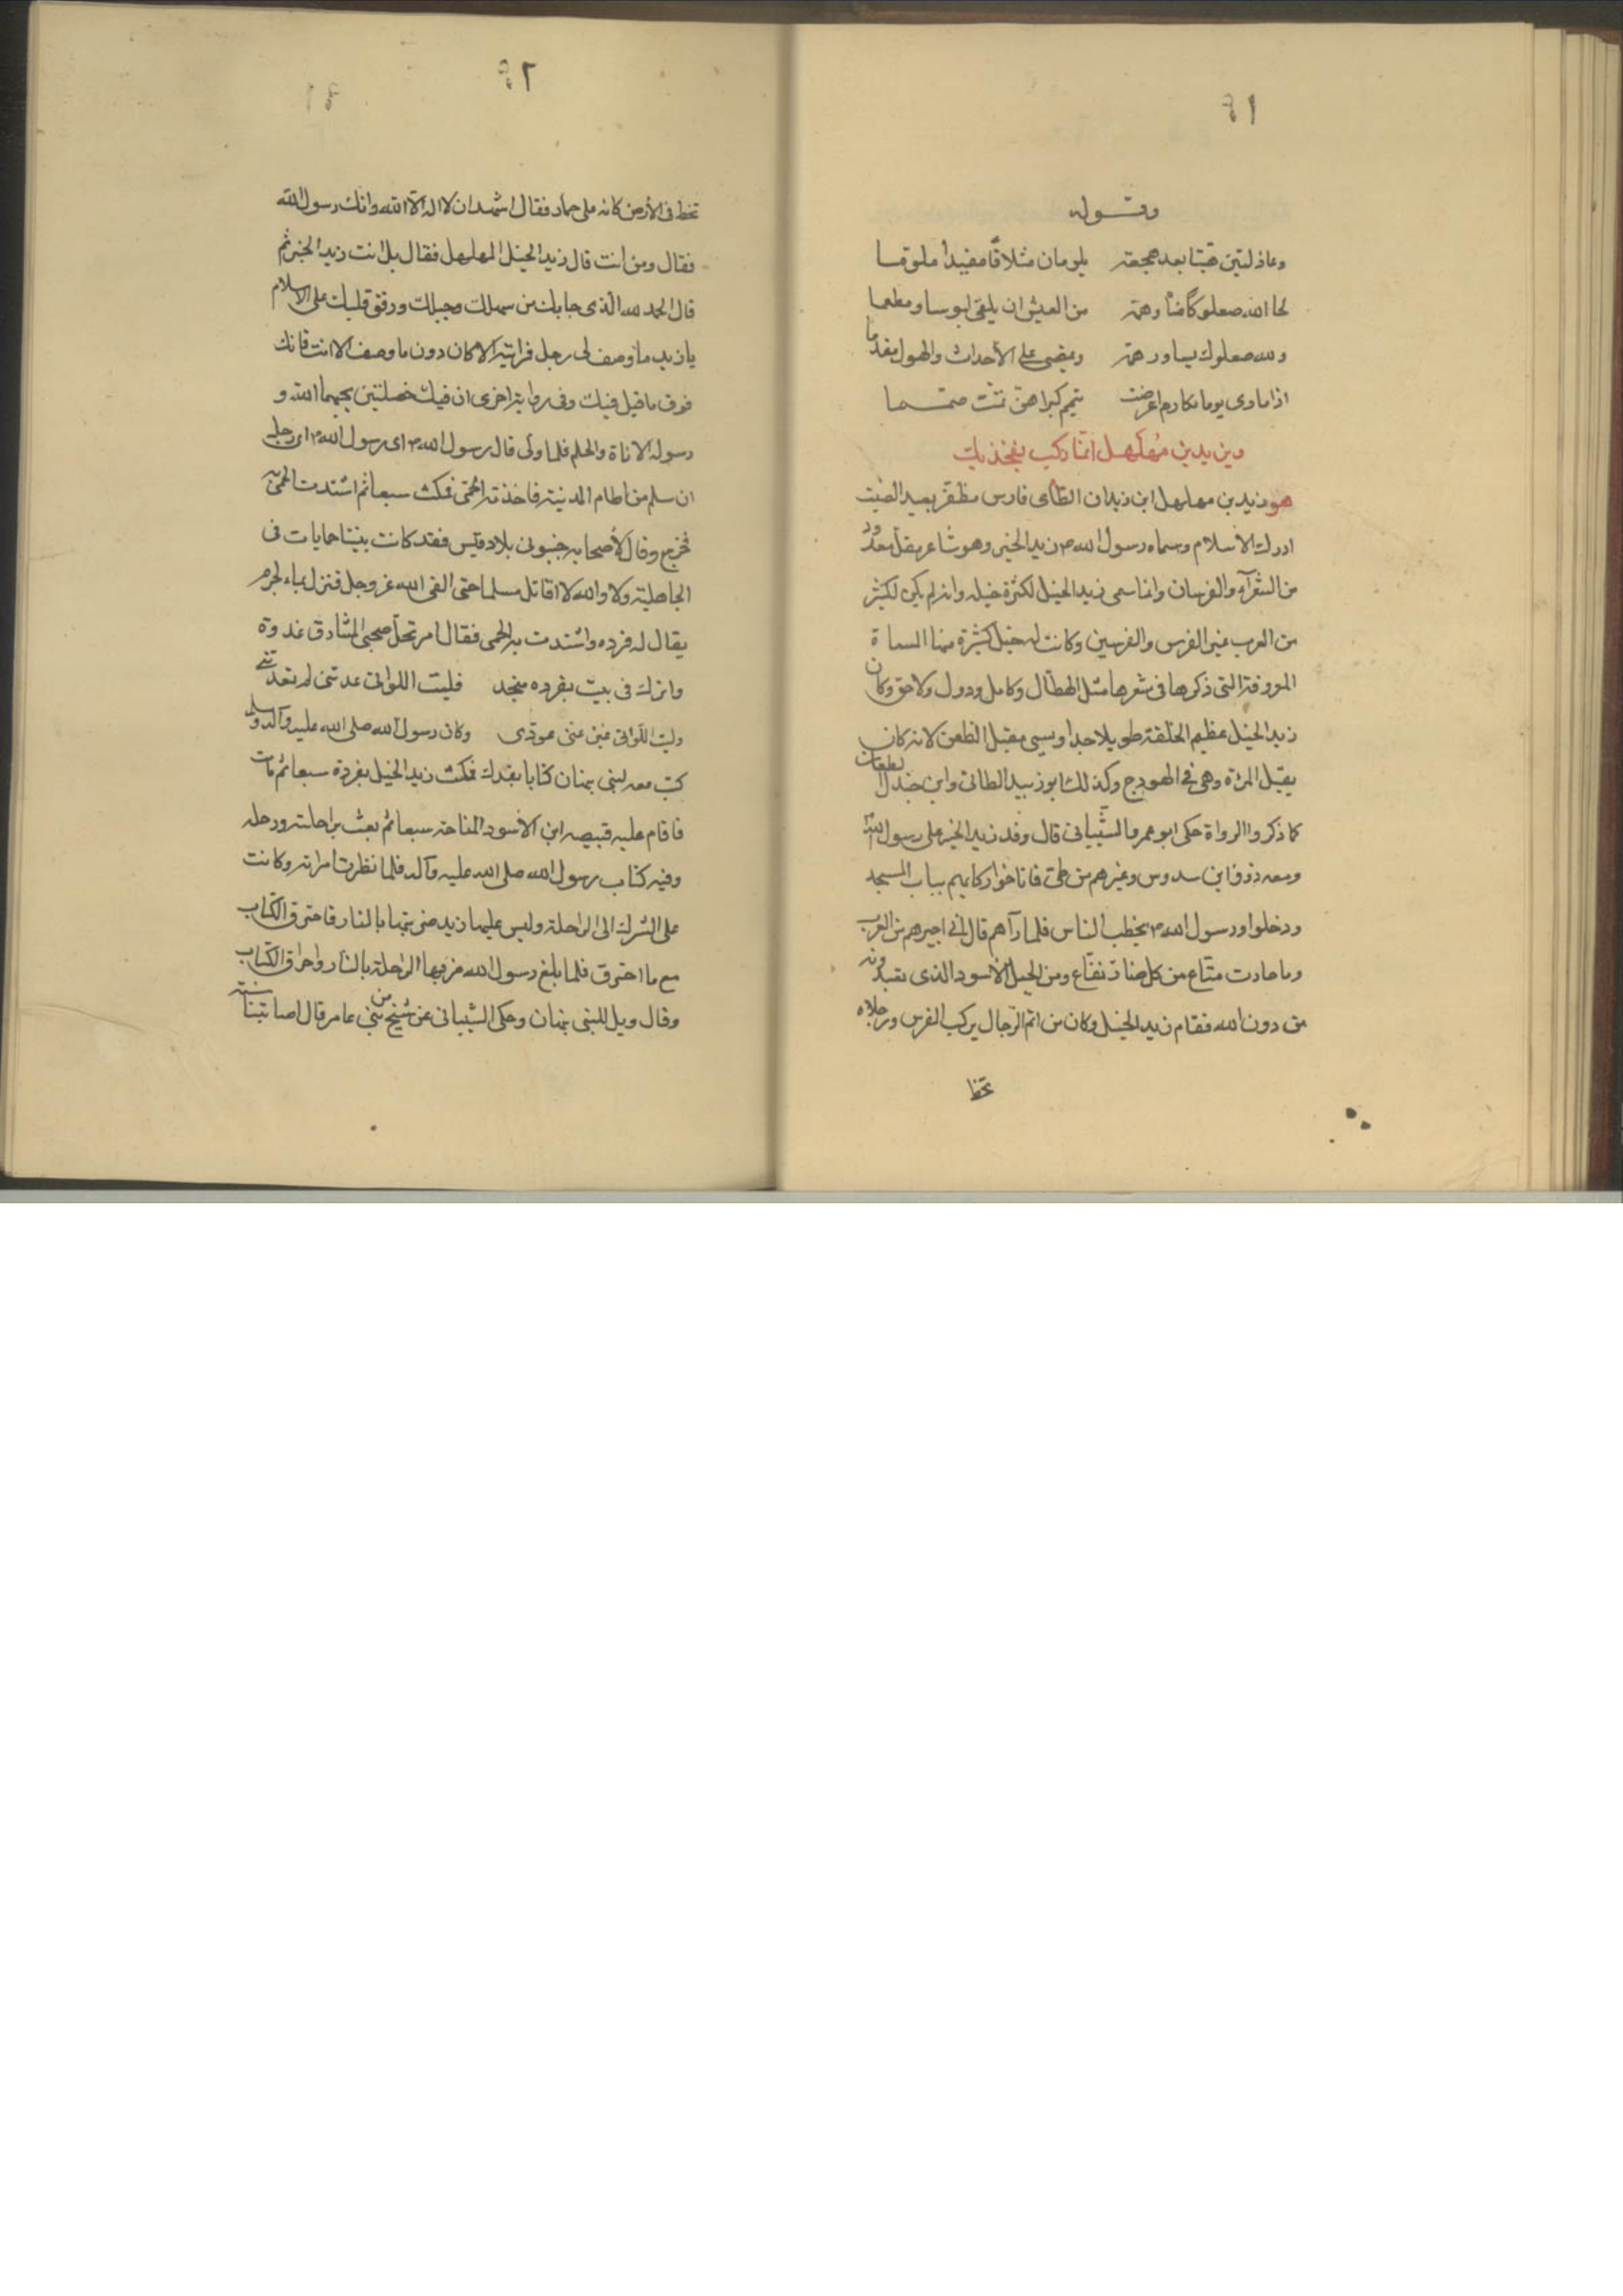 ٩١
وقوله
وعاذلتين هبتا بعد هجعة يلومان متلافا مفيدا ملوما
لحا الله صعلوكا مناه وهمه من العيش ان يلقى لبوسا ومطعما
ولله صعلوك يساور همه ويمضى على الأحداث والهول مقدما
اذا مارى يوما مكارم اعرضت تيمم كبراهن ثمت صمما
وزيد بن مهلهل انما ركب بفخذيك
هو زيد بن مهلهل ابن زيدان الطائى فارس مظفر بعيد الصيت
ادرك الاسلام وسماه رسول الله ص زيد الخير وهو شاعر مقل معدود
من الشعرآء والفرسان وانما سمى زيد الخيل لكثرة خيله وانه لم يكن لكثير
من العرب غير الفرس والفرسين وكانت له خيل كثيرة منها المسماة
المعروفة التى ذكرها فى شعرها مثل الهطال وكامل ودول ولاحق وكان
زيد الخيل عظيم الخلقة طويلا جدا ويسمى مقبل الظعن لانه كان
يقبل المرئة وهى فى الهودج وكذلك ابو زبيد الطائى وابن جندل الطعان
كما ذكروا الرواة حكى ابو عمرو الشيبانى قال وفد زيد الخير على رسول الله
ومعه ابن سدوس وغيرهم من طى فاناخوا ركابهم بباب المسجد
ودخلوا ورسول الله ص يخطب الناس فلما رآهم قال انى اخيرهم من العرب
وما حازت مناع من كل ضار نفاع ومن الجبل الأسود الذى تعبدونه
من دون الله فقام زيد الخيل وكان من اتم الرجال يركب الفرس ورجلاه
تخط
٩٢
تخط فى الأرض كانه على حمار فقال اشهد ان لا اله الا الله وانك رسول الله
فقال ومن انت قال زيد الخيل المهلهل فقال بل انت زيد الخير ثم
قال الحمد لله الذى جابك من سهلك وجبلك ورفق قلبك على الاسلام
يا زيد ما وصف لى رجل فرايته الا كان دون ما وصف الا انت فانك
فوق ما قيل فيك وفى رواية اخرى ان فيك خصلتين يحبهما الله و
رسوله الاناة والحلم فلما ولى قال رسول الله ص اى رجل
ان سلم من اطام المدينة فاخذته الحمى فمكث سبعا ثم اشتدت الحمى به
فخرج وقال لأصحابه جنبونى بلاد قيس فقد كانت بيننا حمايات فى
الجاهلية ولا والله لا اقاتل مسلما حتى القى الله عز وجل فنزل بماء لجرم
يقال له فرده واشتدت به الحمى فقال امرتحل صحبى المشارق غدوة
واترك فى بيت بفرده منجد فليت اللواتى عدننى لم يعدننى
وليت اللواتى غبن عنى عودى وكان رسول الله صلى الله عليه وآله وسلم
كتب معه لبنى نبهان كتابا بفدك فمكث زيد الخيل بفردة سبعا ثم مات
فاقام عليه قبيصه ابن الاسود المناحة سبعا ثم بعث براحلته ورحله
وفيه كتاب رسول الله صلى الله عليه وآله فلما نظرت امراته وكانت
على الشرك الى الراحلة وليس عليها زيد ضربتها بالنار فاحترق الكتاب
مع ما احترق فلما بلغ رسول الله ضربها الراحلة بالنار واحراق الكتاب
وقال ويل للبنى نبهان وحكى الشيبانى عن شيخ من بنى عامر قال اصابتنا سنة